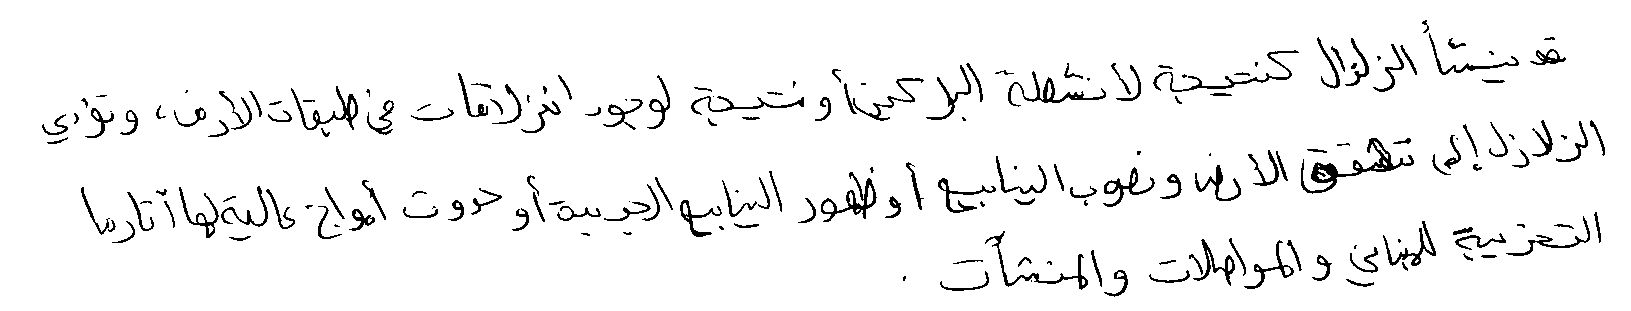 قد ينشأ الزلزال كنتيجة لأنشطة البراكين أو نتيجة لوجود انزلاقات في طبقات الأرض، وتؤدي
الزلازل إلى تشقق الأرض ونضوب الينابيع أو ظهور الينابيع الجديدة أو حدوث أمواج عالية لها آثارها
التخريبية للمباني والمواصلات والمنشآت .